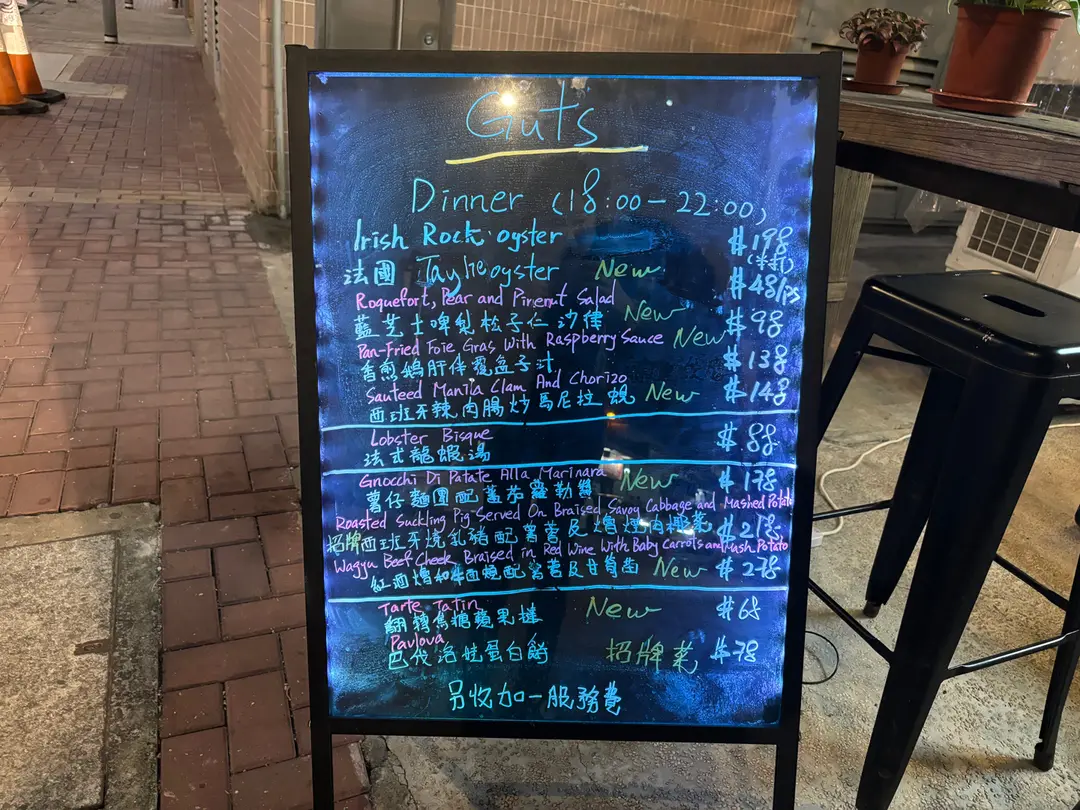 Guts
Dinner (18:00 - 22:00)
Irish Rock oyster $198
(半打)
法國 oyster New $48/ps
Roquefort, Pear and Pinenut Salad
藍芝士啤梨松子仁沙律 New $98
Pan-Fried Foie Gras With Raspberry Sauce New
香煎鵝肝伴覆盆子汁 $138
Sauteed Manila Clam And Chorizo
西班牙辣肉腸炒馬尼拉蜆 New $148
Lobster Bisque
法式龍蝦湯 $88
Gnocchi Di Patate Alla Marinara
薯仔麵團配蕃茄羅勒醬 New $178
Roasted Suckling Pig Served On Braised Savoy Cabbage and Mashed Potato
招牌西班牙燒乳豬配薯蓉及燴煙肉椰菜 $218
Wagyu Beef Cheek Braised in Red Wine With Baby Carrots and Mash Potato
紅酒燴和牛面頰配薯蓉及甘筍 New $278
Tarte Tatin
翻轉焦糖蘋果撻 New $68
Pavlova
巴伐洛娃蛋白餅 招牌菜 $78
另收加一服務費